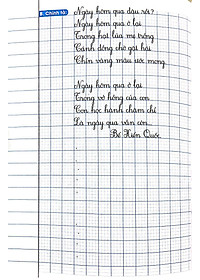 Chính tả:
Ngày hôm qua đâu rồi?
Ngày hôm qua ở lại
Trong hạt lúa mẹ trồng
Cánh đồng chờ gặt hái
Chín vàng màu ước mong.
Ngày hôm qua ở lại
Trong vở hồng của con
Con học hành chăm chỉ
Là ngày qua vẫn còn...
Bế Kiến Quốc